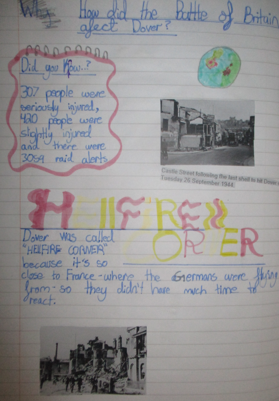 How did the Battle of Britain
afect Dover?
Did you Know..?
307 people were
seriously injured,
420 people were
slightly injured
and there were
3059 raid alerts
Castle Street following the last shell to hit Dover
Tuesday 26 September 1944.
HELLFIRE
CORNER
Dover was called
"HELLFIRE CORNER"
because it's so
close to France - where the Germans were flying
from - so they didn't have much time to
react.